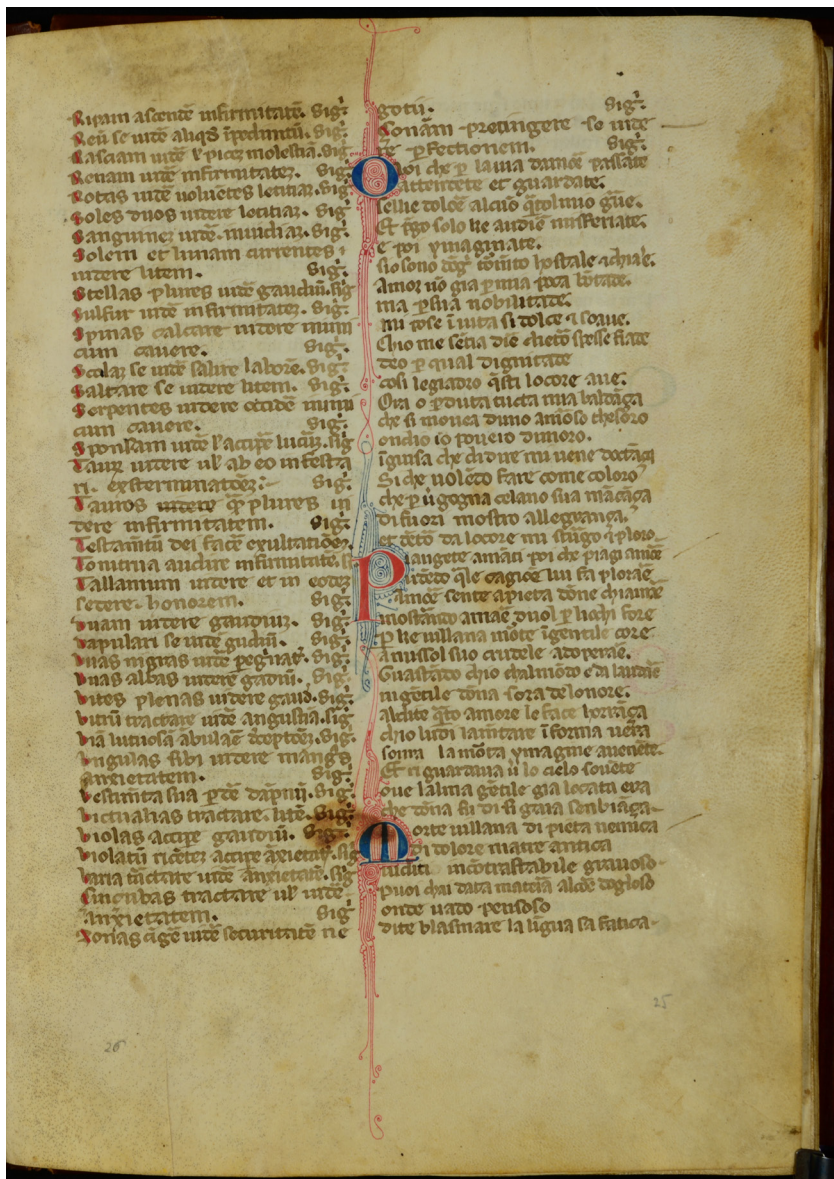 Ripam ascendē infirmitatē. Sigͬ.
Reū se uidē aliqd īpedimtū. Sigͬ.
Rasciam uidē l' picez molestiā. Sigͬ
Renam uidē infirmitatez. Sigͬ
Rotas uidē voluētes letitiaz. Sigͬ
Soles duos uidere letitiaz. Sigͬ
Sanguinez uidē. mundiaz. Sigͬ
Solem et lunam currentes
uidere litem. Sigͬ.
Stellas plures uidē gaudiū. sig
Sulfur uidē infirmitatez. Sigͬ.
Spinas calcare uidere inimi
cum cauere. Sigͬ.
Scalaz se uidē salire laborē. Sigͬ
Saltare se uidere litem. Sigͬ
Serpentes uidere occidē inimi
cum cauere. Sigͬ
Sponsam uidē l' accipē lucrū. sig
Tauꝝ uidere ul' ab eo infesta
ri. exsterminatōez. Sigͬ
Tauros uidere qͫ plures in
dere infirmitatem. Sigͬ
Testamtū dei facē exultatiōez.
Tonitrua audire infirmitatē. s
Tallamum uidere et in eodez
sedere. honorem. Sigͬ
Vuam uidere gaudiuz. Sigͬ
Vapulari se uidē gudiū. Sigͬ
Vuas nigras uidē pegnat'. Sigͬ
Vuas albas uidere gadiū. Sigͬ
Vites plenas uidere gaud. Sigͬ
Vitrū tractare uidē angustia. sig
Viā lutuosā ābulaē dceptōez. Sigͬ
Vngulas sibi uidere mangͣs
anxietatem. Sigͬ
Vestimta sua pdē dāpnū. Sigͬ
Victualias tractare. litē. Sigͬ
Violas accipe gaudiū. Sigͬ
Violatū accipe āxietatē. sig
Varia tractare uidē anxietatē. sig
Singibas tractare ul' uidē
anxietatem. Sigͬ
Zonas cīgē uidē securitatē ne
gotii. Sigͬ.
Zonām protingere se uide
re pfectionem. Sigͬ
O Voi che p la uia damōe passate
attendete et guardate.
selli e dolōe alcuō qͭo lmio gūe.
Et pgo solo ke audiē mi sferiate.
e poi ymaginate.
sio sono dogͥ tōmto hostale e chiaue.
Amor nō gia p mia poca bōtade.
ma p sua nobilitade.
mi pose ī uita si dolce e soaue.
Chio me setia diē chetō spesse fiate
deo p qual dignitate
cosi legiadro qsti locore aue.
Ora o pduta tucta mia baldāça
che si mouea duno amōso thesōro
ondio io pouero dimoro.
īguisa che di dire mi uene doctāça
Si che volēdo fare come coloro
che p ūgogna celano sua mācāça
di fuori mostro allegrança.
et dētō da locore mi strugo e ploro
P iangete amāti poi che piagi amōe
udēdo qͣle cagiōe lui fa plorāe
Amōe sente apieta dōne chiamāe
mostādo amaē duol p licchi fore
P ke uillana mōte īgentile core
a miss ol suo crudele adoperāe.
Guastādo chio chalmōdo e da laudāe
in gētile dōna sora de lonore.
Aldite qͭo amore le face horrāça
chio luidi lamtare ī forma uēra
soura la mōta ymagine auenēte.
Et ri guardaua ū lo cielo souēte
oue lalma gētile gia locata era
che dōna fu di si gaia senbiāça
M orte uillana di pieta nemica
di dolore matre antica
iuditi incōtrastabile grauoso
Puoi chai data matīa alcōe doglioso
onde uado pensoso
dite blasmare la līgua sa fatica
26
25